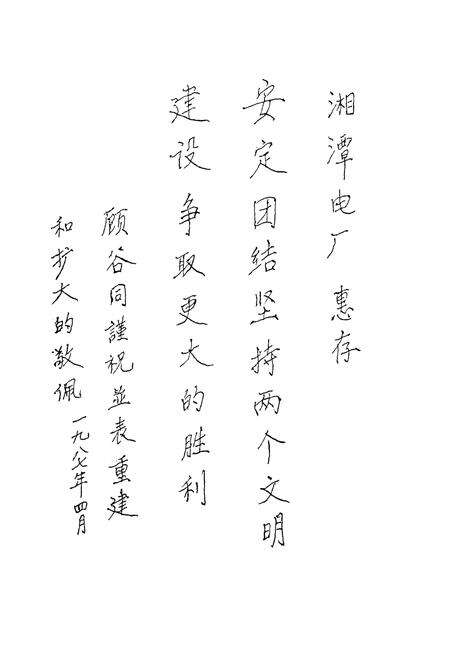 湘潭电厂 惠存
安定团结坚持两个文明
建设争取更大的胜利
顾谷同謹祝並表重建
和扩大的敬佩 一九八七年四月